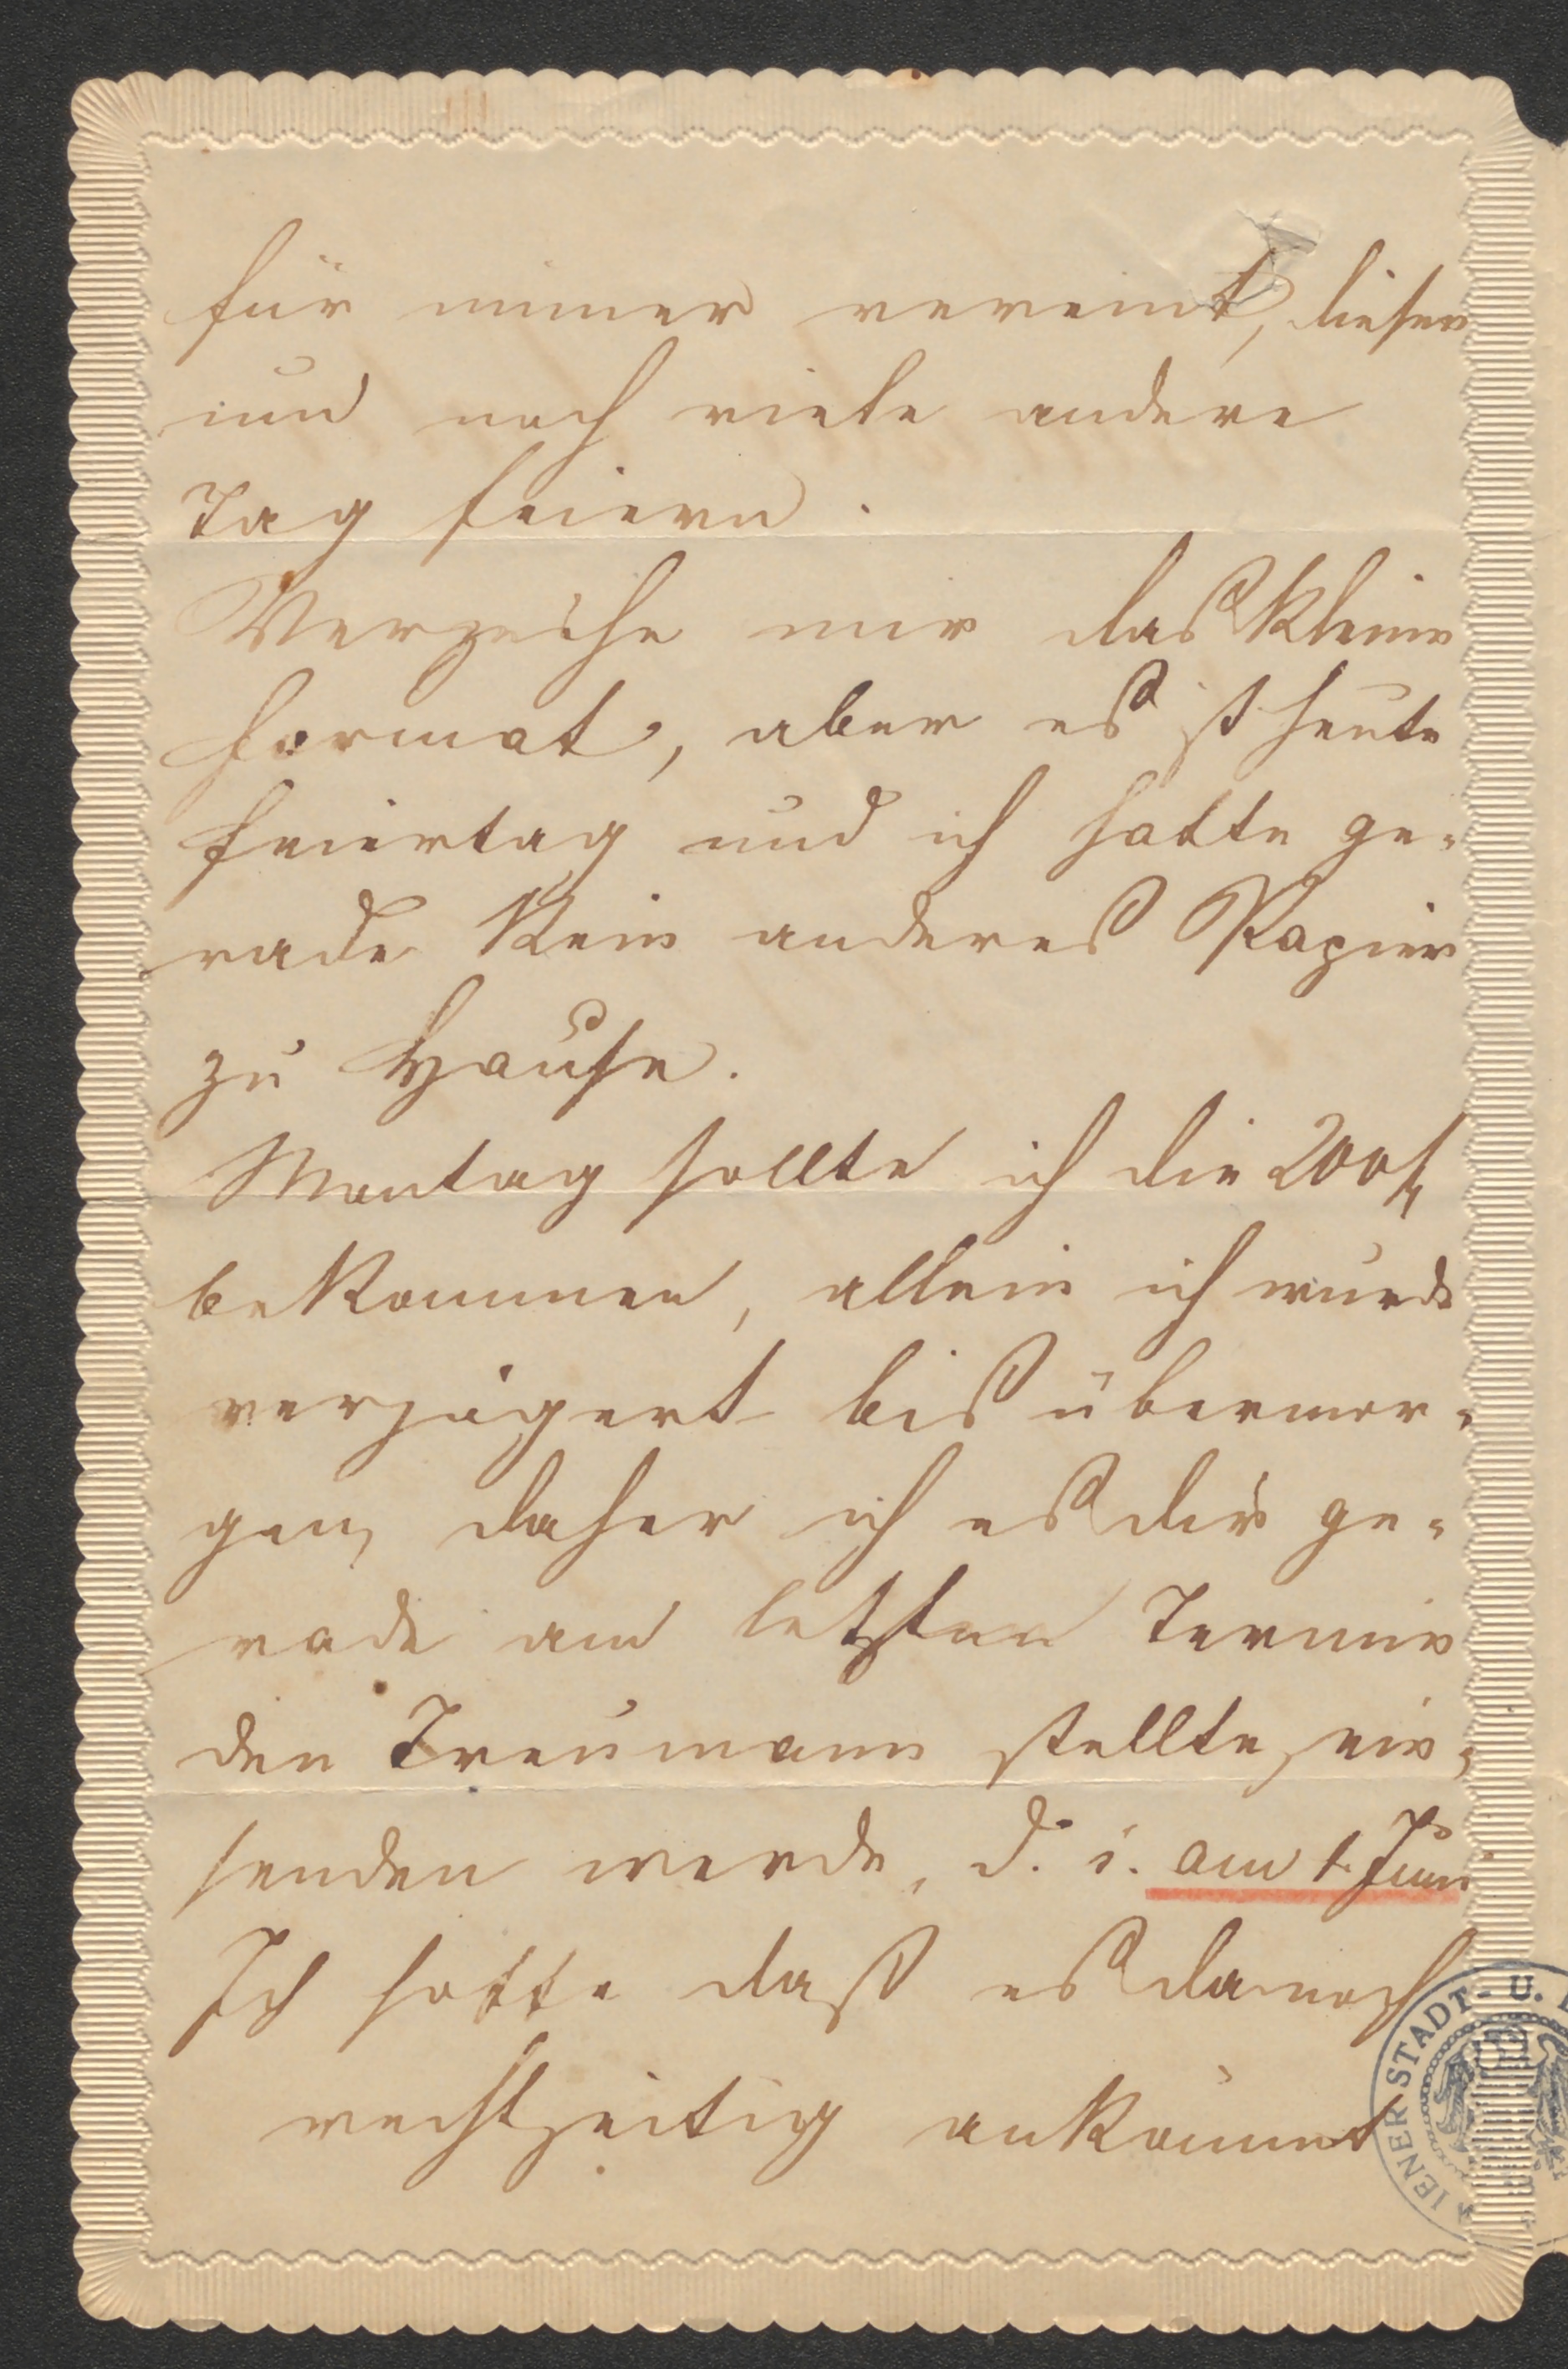 für immer vereint, diesen
und noch viele andere
Tag feiern.
Verzeihe mir das kleine
Format, aber es ist heute
Feiertag und ich hatte ge-
rade kein anderes Papier
zu Hause.
Montag sollte ich die 200 f
bekommen, allein ich wurde
verzögert bis übermor-
gen, daher ich es dir ge-
rade am letzten Termin
den Treumann stellte, ein-
senden werde, d. i. am 1. Juni
Ich hoffe daß es dannoch
rechtzeitig ankommt
IENER STADT- U.